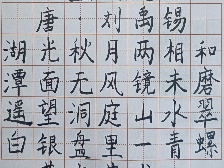 唐 刘禹锡
湖光秋月两相和
潭面无风镜未磨
遥望洞庭山水翠
白银盘里一青螺